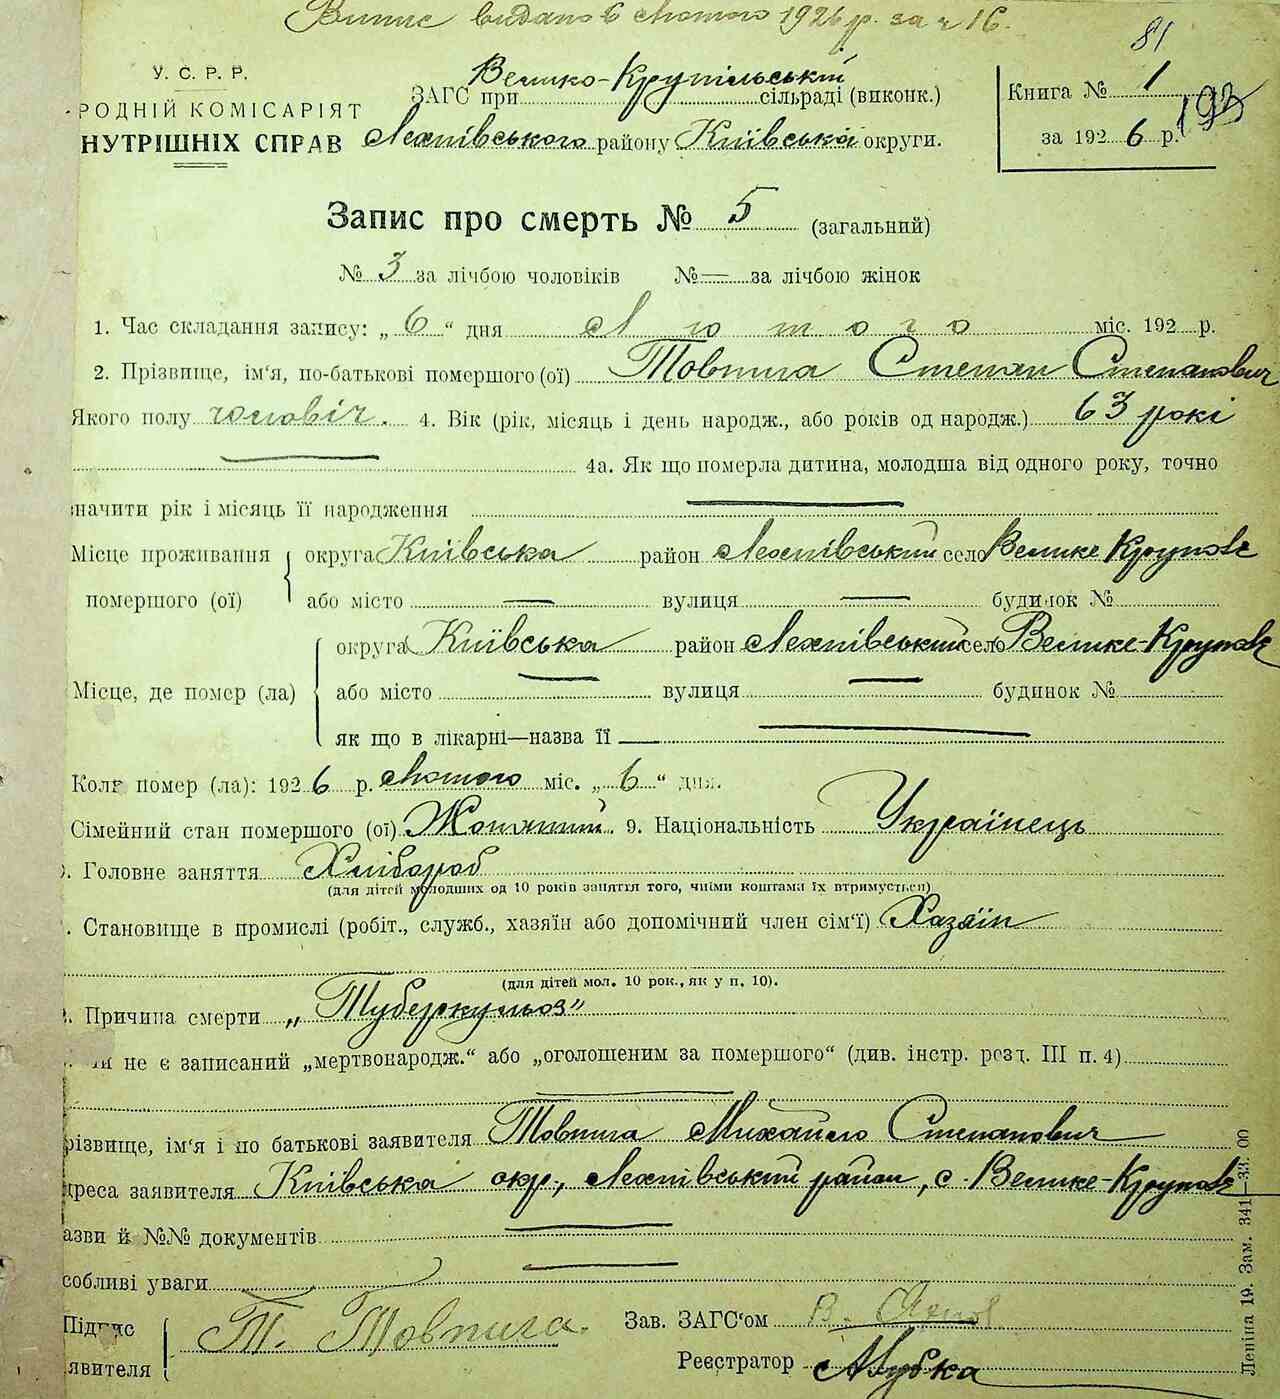 Випис видано 6 Лютого 1926 р. за ч 16.
81
У. С. Р. Р.
РОДНІЙ КОМІСАРІЯТ
НУТРІШНІХ СПРАВ
ЗАГС при Велико-Крупільській сільраді (виконк.)
району Київська округи.
Книга № 1
193
за 1926 р.
Запис про смерть № 5 (загальний)
№ 3 за лічбою чоловіків № — за лічбою жінок
1. Час складання запису: „ 6 “ дня Лютого міс. 192 р.
2. Прізвище, ім‘я, по-батькові помершого (ої) Товпига Степан Степанович
Якого полу чоловіч. 4. Вік (рік, місяць і день народж., або років од народж.) 63 рокі
4а. Як що померла дитина, молодша від одного року, точно
значити рік і місяць її народження
Місце проживання округа Київська район село Велике Круполе
помершого (ої) або місто — вулиця — будинок №
округа Київська район село Велике-Круполе
Місце, де помер (ла) або місто — вулиця — будинок №
як що в лікарні—назва її —
Коли помер (ла): 1926 р. Лютого міс. „ 6 “ дня.
Сімейний стан помершого (ої) Жонатий. 9. Національність Українець
. Головне заняття Хлібароб
(для дітей молодших од 10 років заняття того, чиїми коштами їх втримується)
. Становище в промислі (робіт., служб., хазяїн або допомічний член сім‘ї) Хазяїн
(для дітей мол. 10 рок., як у п. 10).
. Причина смерти „Туберкульоз”
не є записаний „мертвонародж.“ або „оголошеним за помершого“ (див. інстр. розд. III п. 4)
різвище, ім‘я і по батькові заявителя Товпига Михайло Степанович
дреса заявителя Київська окр., район, с. Велике-Круполе
азви й №№ документів
собливі уваги
Підпис
аявителя
Т. Товпига.
Зав. ЗАГС‘ом В.
Реєстратор
Леніна 19. Зам. 341—33. 00